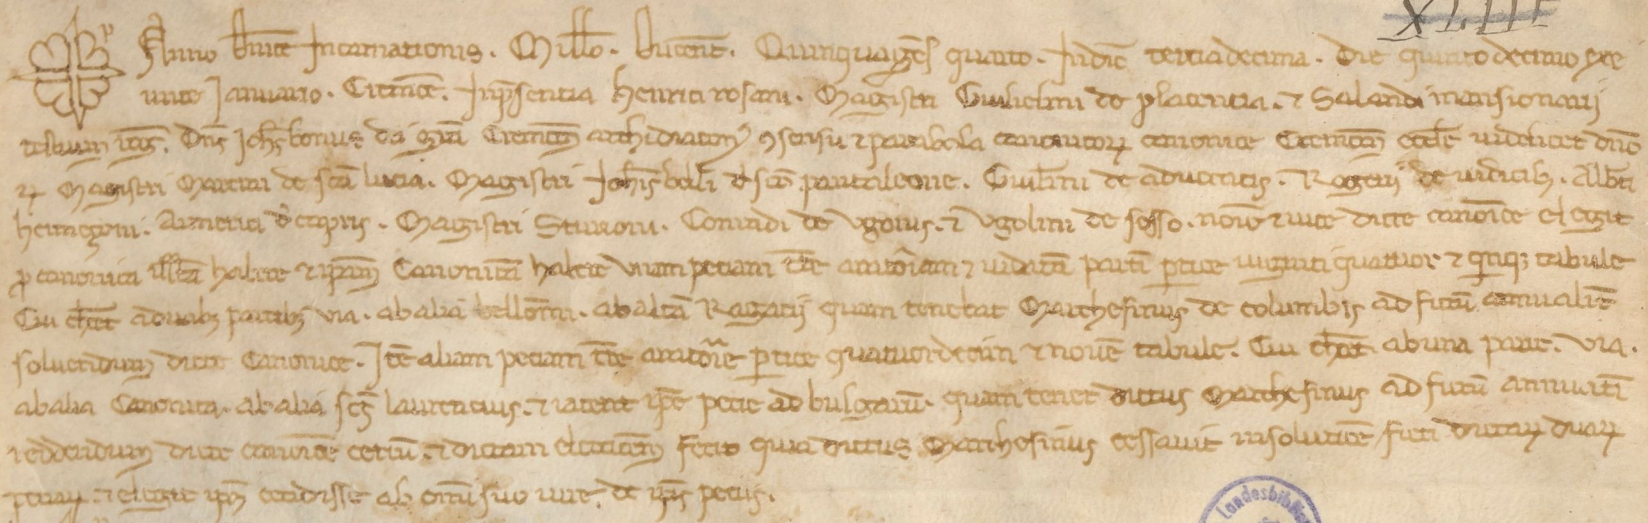 XLIII
Anno dnice Incarnationis. Millo. ducent. Quinquages quarto. Indic tertiadecima. Die quintodecimo exe
unte Januario. Cremone. Inpsentia Henrici rosani. Magistri Guilielmi de placentia. & Salandi mansionarii
testium rog. Dns Johs bonus di gra Cremon archidiacon9 9sensu & parabola canonicor canonice Cremon eccle videlicet dno
r Magistri Martini de sca lucia. Magistri Johis belli d sco pantaleone. Guilmi de advocatis. Rogerii de iudicib. Albti
hermigoni. Aimerici d capris. Magistri Sturioni. Conradi de Ugonis. & Ugolini de sesso. noie & vice dicte canonice elegit
p canonica illa habere & ipam Canonica habere unam peciam tre aratoriam & vidata parti ptice viginti quatuor & qnq3 tabule
Cui cheret aduab3 partib3 via. ab alia ab alta Ragacii quam tenebat Marchesinus de columbis ad fictu annualit
solvendum dicte Canonice. Ite aliam peciam tre aratorie ptice quatuordecim & nove tabule. Cui cheret ab una parte. via.
ab alia Canonica. ab alia scs laurencius. & iacent ipse pecie ad bulgaru. quam tenet dictus Marchesinus ad fictu annuati
reddendum dicte canonice & dictam election fecit quia dictus Marchesinus cessavit insolutioe ficti dictar duar
peciar. & elegit ips cecidisse ab omi suo iure. de ipis peciis.
Landesbibliothek